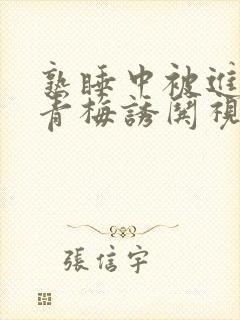 熟睡中被進
青梅誘関視
張信宇